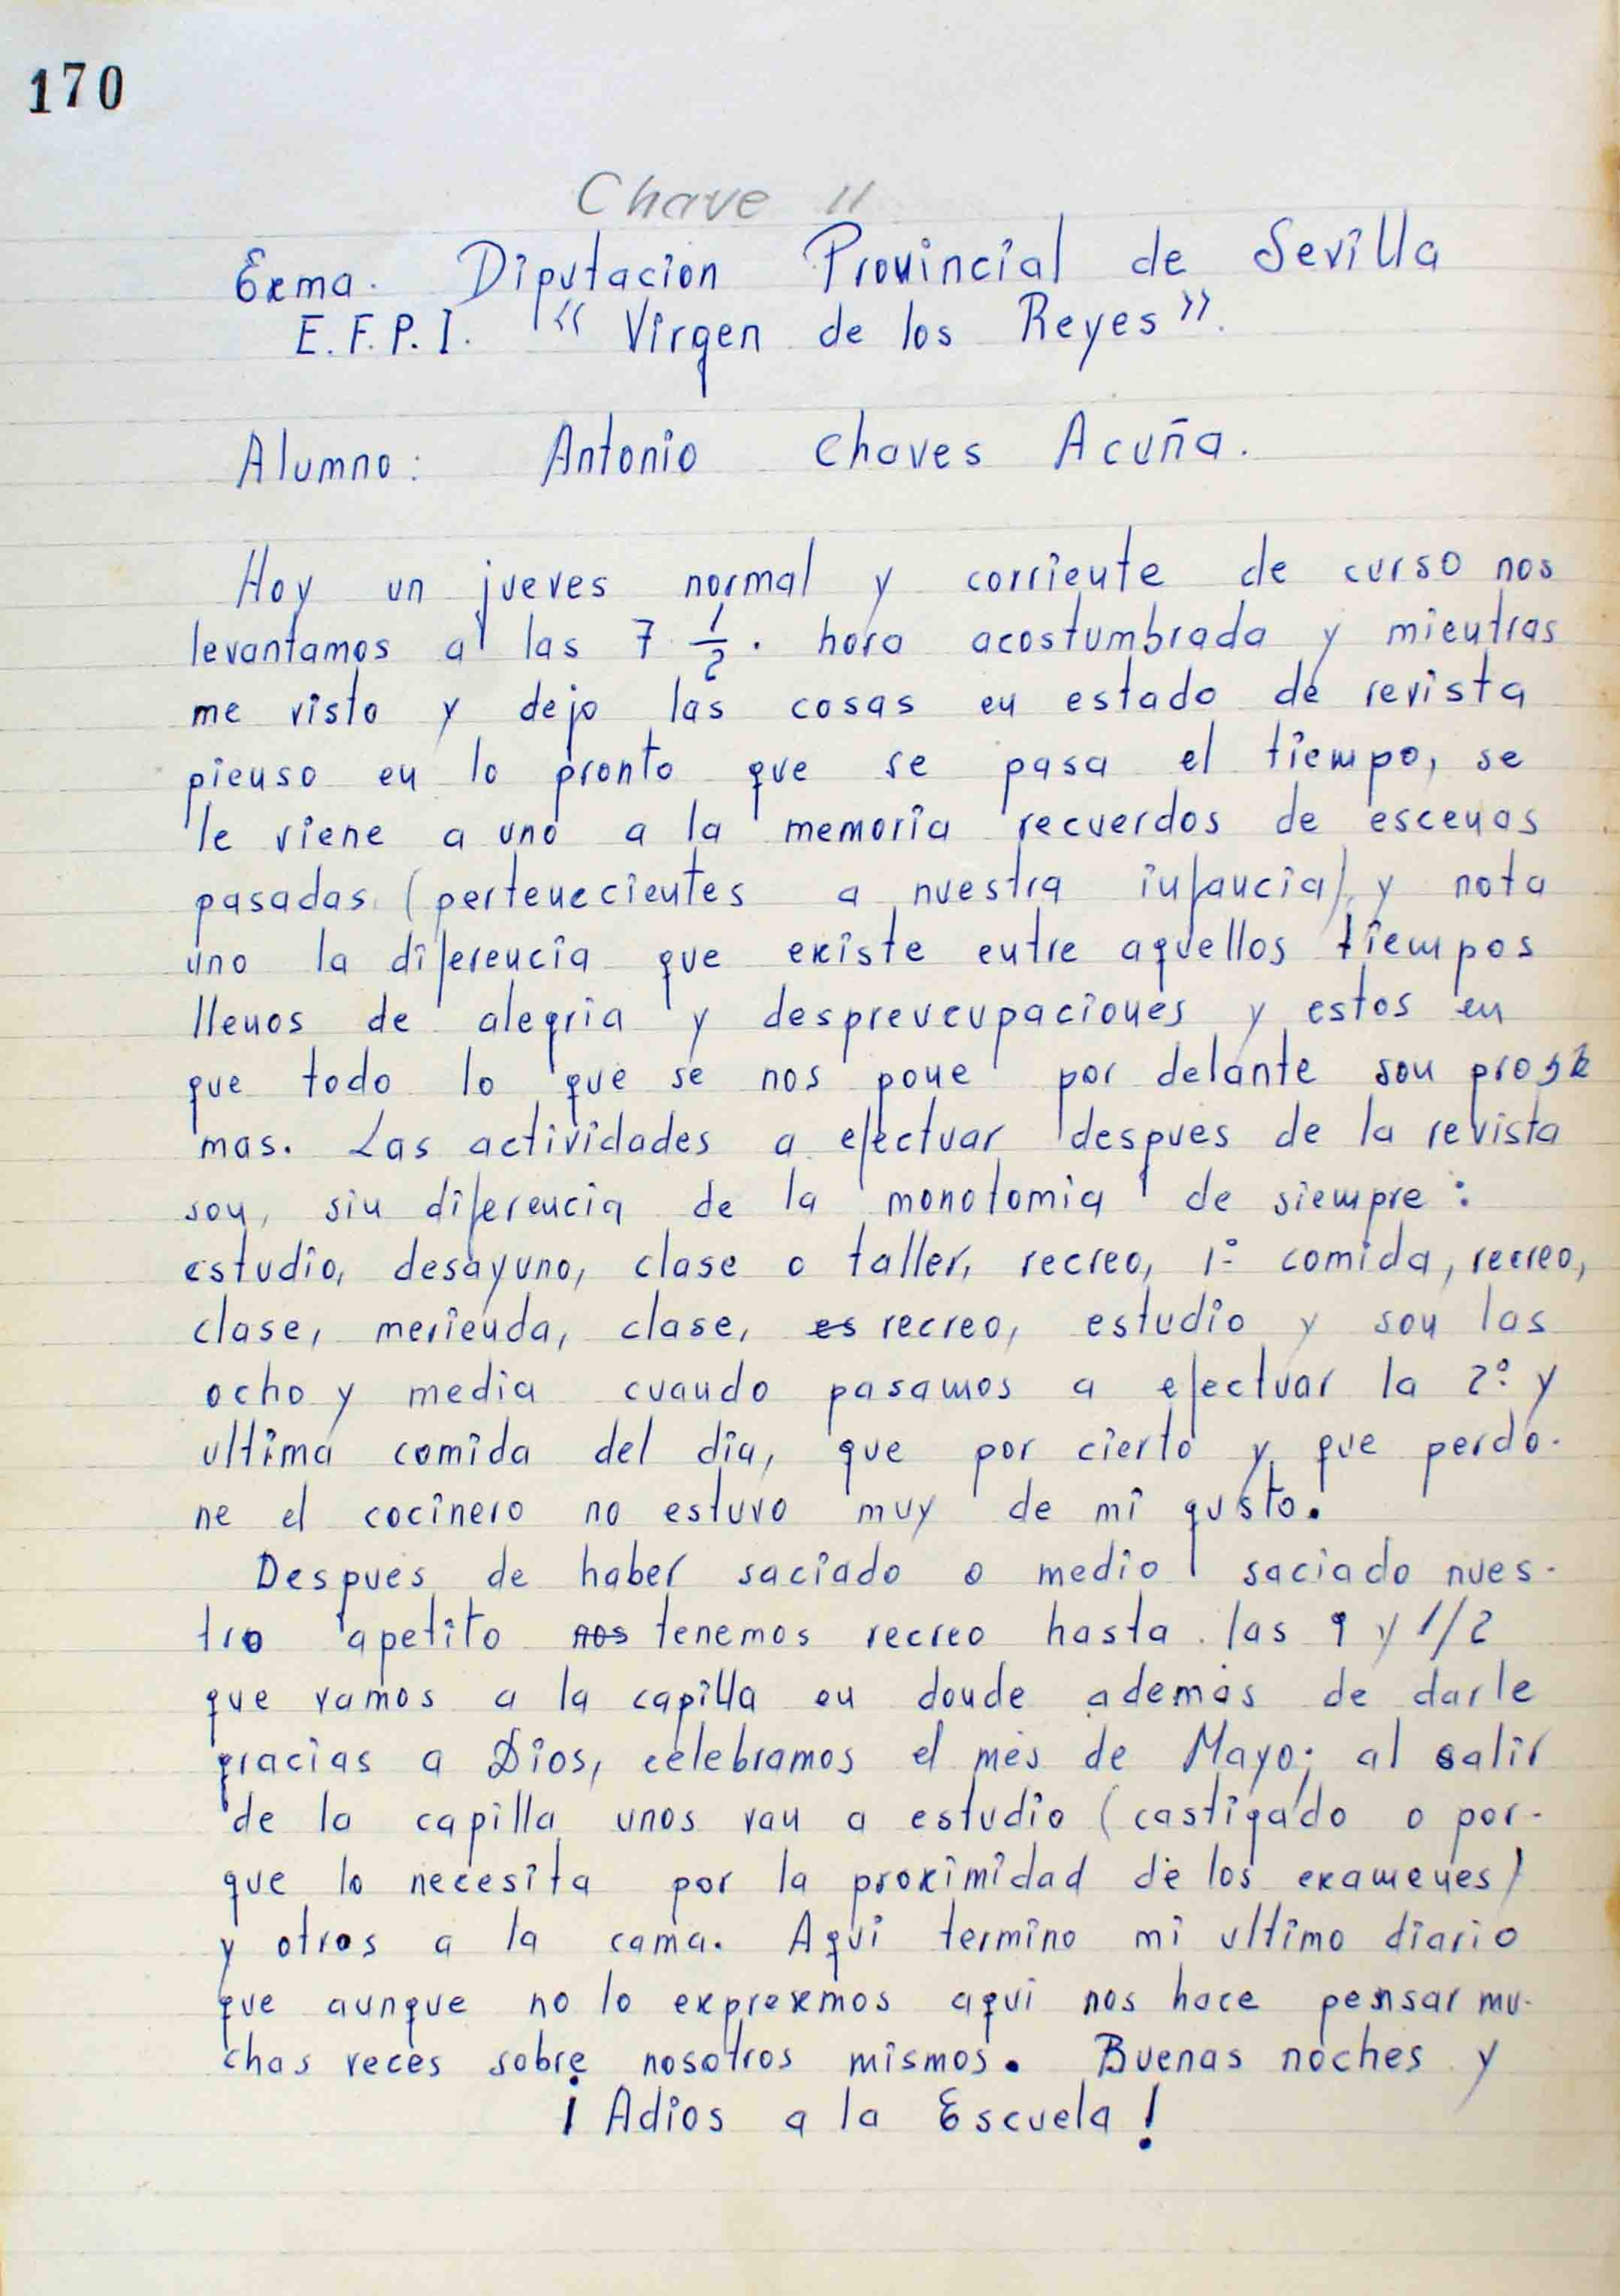 170
Chave 11
Exma. Diputacion Provincial de Sevilla
E.F.P.I. "Virgen de los Reyes".
Alumno: Antonio Chaves Acuña.
Hoy un jueves normal y corriente de curso nos
levantamos a las 7 1/2. hora acostumbrada y mientras
me visto y dejo las cosas en estado de revista
pienso en lo pronto que se pasa el tiempo, se
le viene a uno a la memoria recuerdos de escenas
pasadas (pertenecientes a nuestra infancia), y nota
uno la diferencia que existe entre aquellos tiempos
llenos de alegria y despreucupaciones y estos en
que todo lo que se nos pone por delante son
mas. Las actividades a efectuar despues de la revista
son, sin diferencia de la monotomia de siempre:
estudio, desayuno, clase o taller, recreo, 1º comida, recreo,
clase, merienda, clase, es recreo, estudio y son las
ocho y media cuando pasamos a efectuar la 2º y
ultima comida del dia, que por cierto y que perdo-
ne el cocinero no estuvo muy de mi gusto.
Despues de haber saciado o medio saciado nues-
tro apetito nos tenemos recreo hasta las 9 y 1/2
que vamos a la capilla en donde ademas de darle
gracias a Dios, celebramos el mes de Mayo; al salir
de la capilla unos van a estudio (castigado o por-
que lo necesita por la proximidad de los examenes)
y otros a la cama. Aqui termino mi ultimo diario
que aunque no lo expresemos aqui nos hace pensar mu-
chas veces sobre nosotros mismos. Buenas noches y
¡Adios a la Escuela!